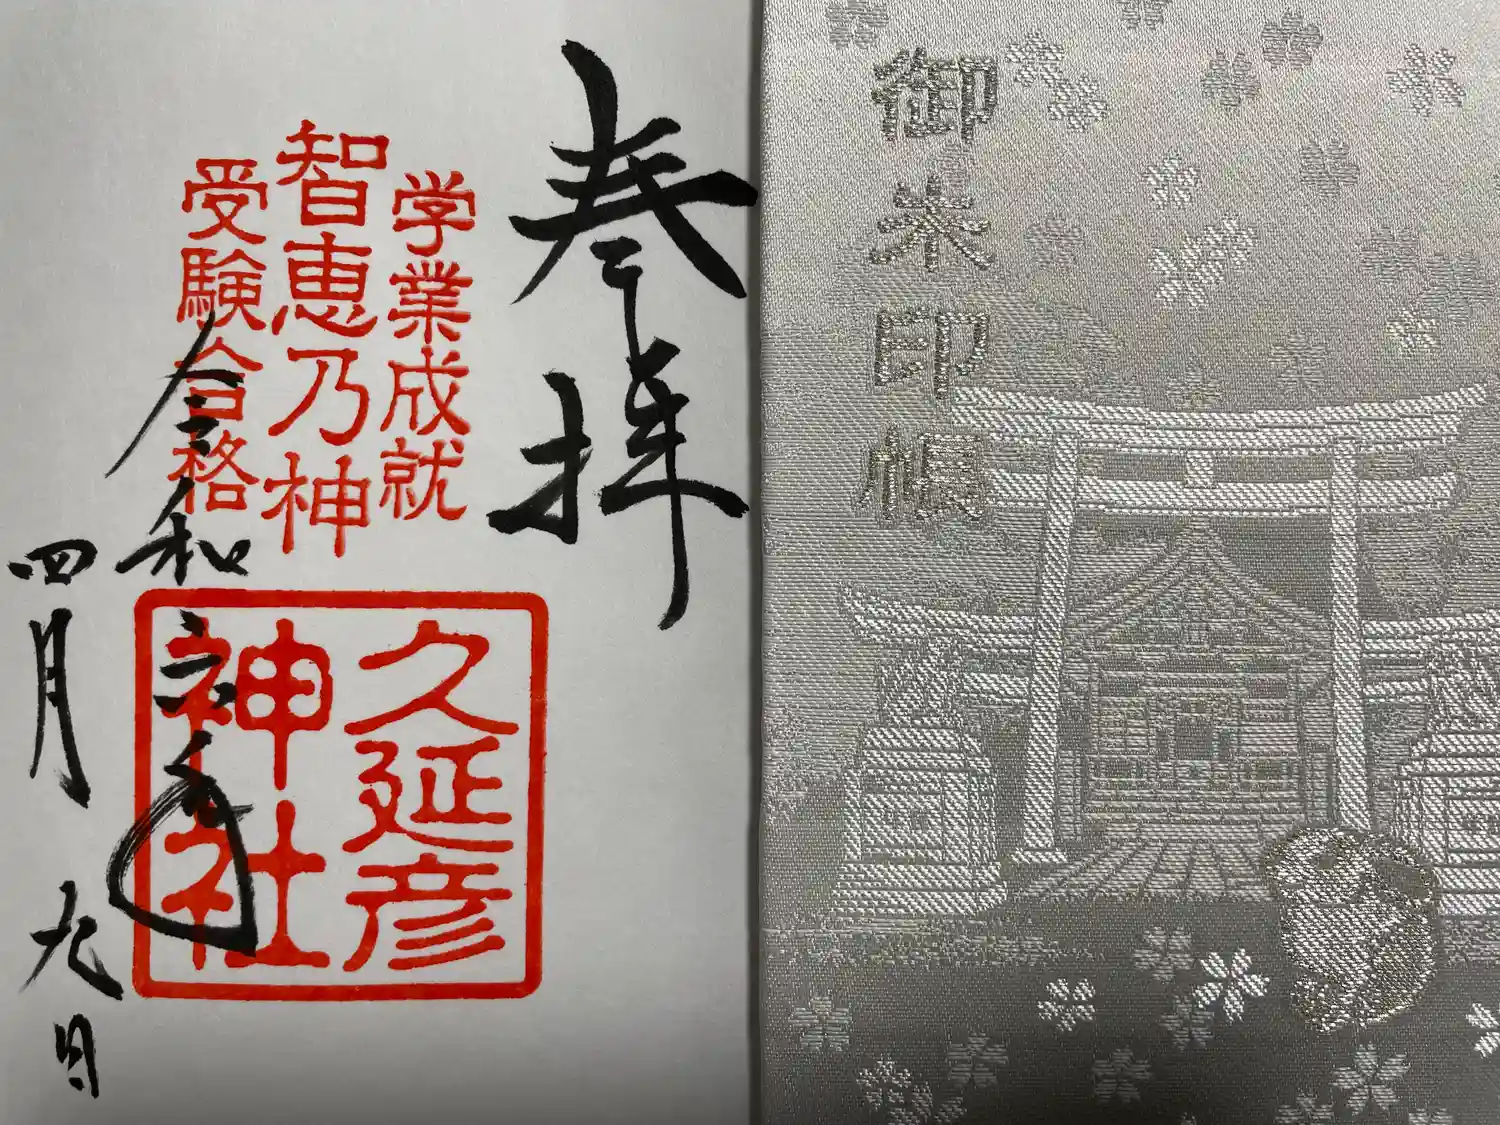 御朱印帳
奉拝
学業成就
智恵乃神
受験合格
久延彦
神社
令和六年
四月九日